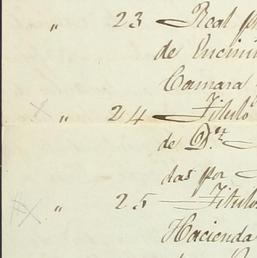 " 23 Real
de Encini
Camara
" 24 Titulo
de D.n
das por
" 25 Titulo
Hacienda